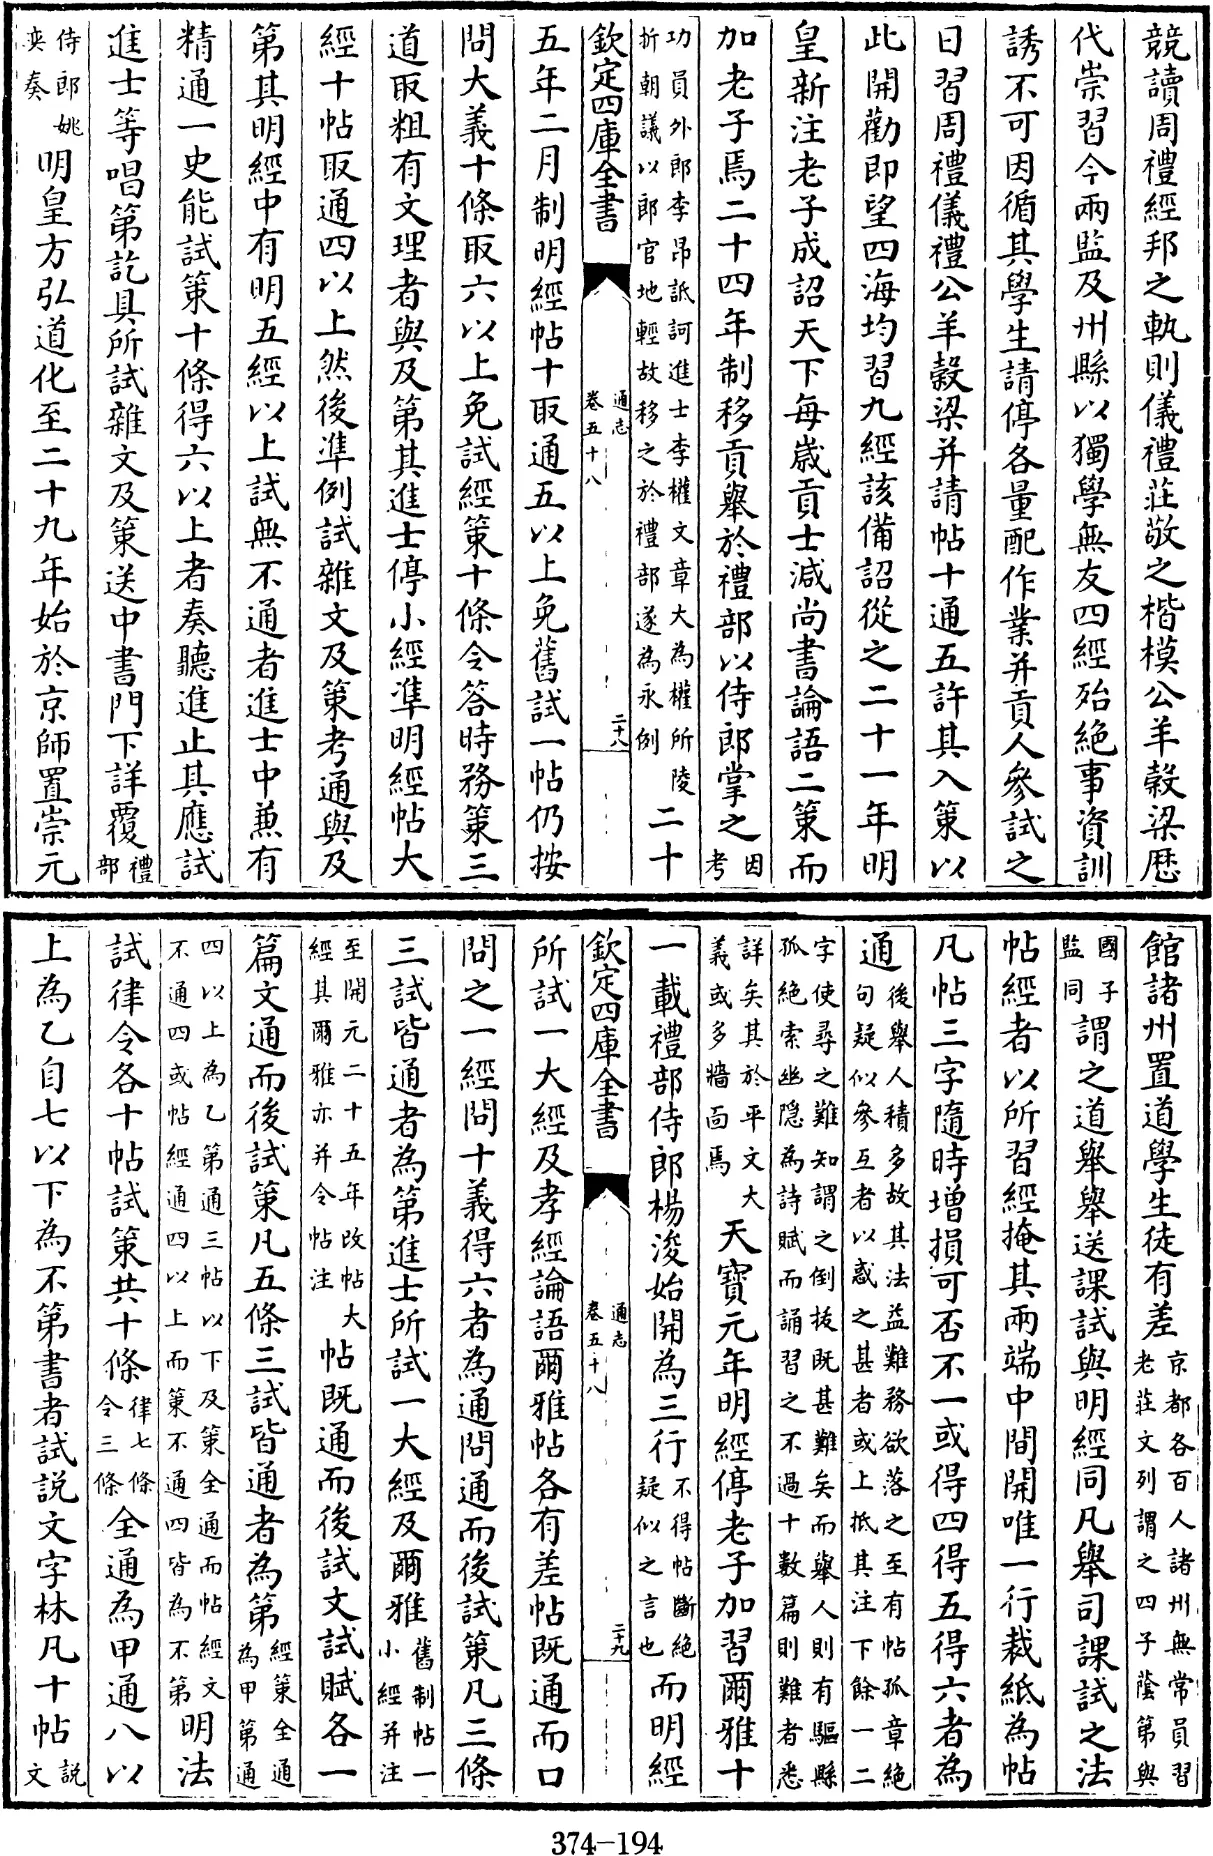 競讀周禮經邦之軌則儀禮莊敬之楷模公羊穀梁歴
代崇習今兩監及州縣以獨學無友四經殆絶事資訓
誘不可因循其學生請停各量配作業并貢人參試之
日習周禮儀禮公羊穀梁并請帖十通五許其入策以
此開勸即望四海均習九經該備詔從之二十一年明
皇新注老子成詔天下每嵗貢士減尚書論語二策而
加老子焉二十四年制移貢舉於禮部以侍郎掌之因考
功員外郎李昂詆訶進士李權文章大為權所陵折朝議以郎官地輕故移之於禮部遂為永例二十
欽定四庫全書 通志卷五十八 二十八
五年二月制明經帖十取通五以上免舊試一帖仍按
問大義十條取六以上免試經策十條令答時務策三
道取粗有文理者與及第其進士停小經凖明經帖大
經十帖取通四以上然後凖例試雜文及策考通與及
第其明經中有明五經以上試無不通者進士中兼有
精通一史能試策十條得六以上者奏聽進止其應試
進士等唱第訖具所試雜文及策送中書門下詳覆禮部
侍郎姚奕奏明皇方弘道化至二十九年始於京師置崇元
館諸州置道學生徒有差京都各百人諸州無常員習老莊文列謂之四子蔭第與
國子監同謂之道舉舉送課試與明經同凡舉司課試之法
帖經者以所習經掩其兩端中間開唯一行裁紙為帖
凡帖三字隨時增損可否不一或得四得五得六者為
通後舉人積多故其法益難務欲落之至有帖孤章絶句疑似參互者以惑之甚者或上抵其注下餘一二
字使尋之難知謂之倒拔既甚難矣而舉人則有驅縣孤絶索幽隠為詩賦而誦習之不過十數篇則難者悉
詳矣其於平文大義或多牆面焉天寶元年明經停老子加習爾雅十
一載禮部侍郎楊浚始開為三行不得帖斷絶疑似之言也而明經
欽定四庫全書 通志卷五十八 二十九
所試一大經及孝經論語爾雅帖各有差帖既通而口
問之一經問十義得六者為通問通而後試策凡三條
三試皆通者為第進士所試一大經及爾雅舊制帖一小經并注
至開元二十五年改帖大經其爾雅亦并令帖注帖既通而後試文試賦各一
篇文通而後試策凡五條三試皆通者為第經策全通為甲第通
四以上為乙第通三帖以下及策全通而帖經文不通四或帖經通四以上而策不通四皆為不第明法
試律令各十帖試策共十條律七條令三條全通為甲通八以
上為乙自七以下為不第書者試説文字林凡十帖説文
374-194